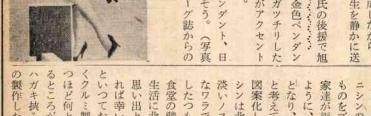 成したから
生を静かに送
氏の後援で旭
金色ペンダ
ガツチリした
がアクセント
ンダント、日
そう。（写真
ーグ誌からの
ニシンの
ものをブ
ように、
となり、
と考えて
図案化し
シンは北
淡いノス
なワラで
したつも
食堂の壁
生活に北
思い出と
れば幸い
といつてお
くクルミ製
つほど何と
るところが
ハガキ挟
の製作した